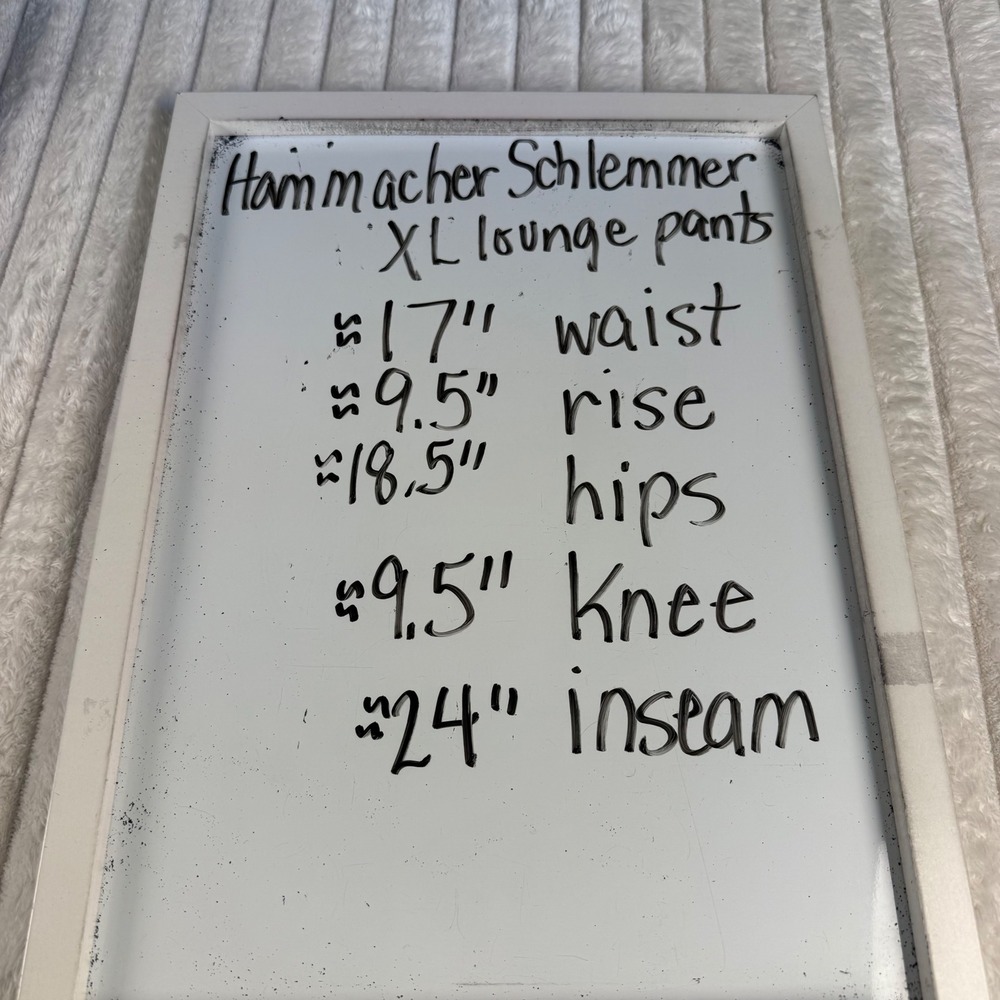 Hammacher Schlemmer
XL lounge pants
≈17" waist
≈9.5" rise
≈18.5" hips
≈9.5" Knee
≈24" inseam